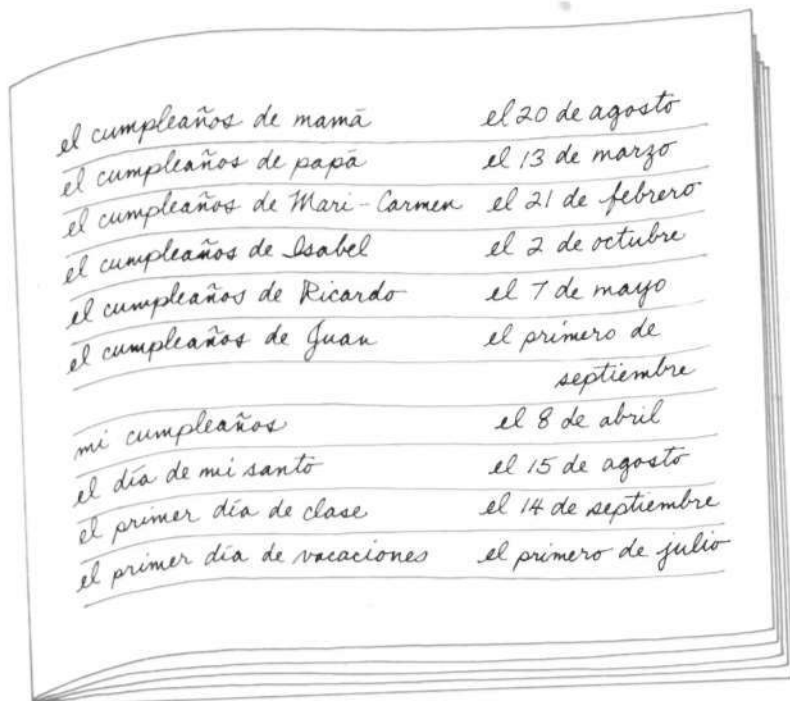 el cumpleaños de mamá el 20 de agosto
el cumpleaños de papá el 13 de marzo
el cumpleaños de Mari-Carmen el 21 de febrero
el cumpleaños de Isabel el 2 de octubre
el cumpleaños de Ricardo el 7 de mayo
el cumpleaños de Juan el primero de
septiembre
mi cumpleaños el 8 de abril
el día de mi santo el 15 de agosto
el primer día de clase el 14 de septiembre
el primer día de vacaciones el primero de julio